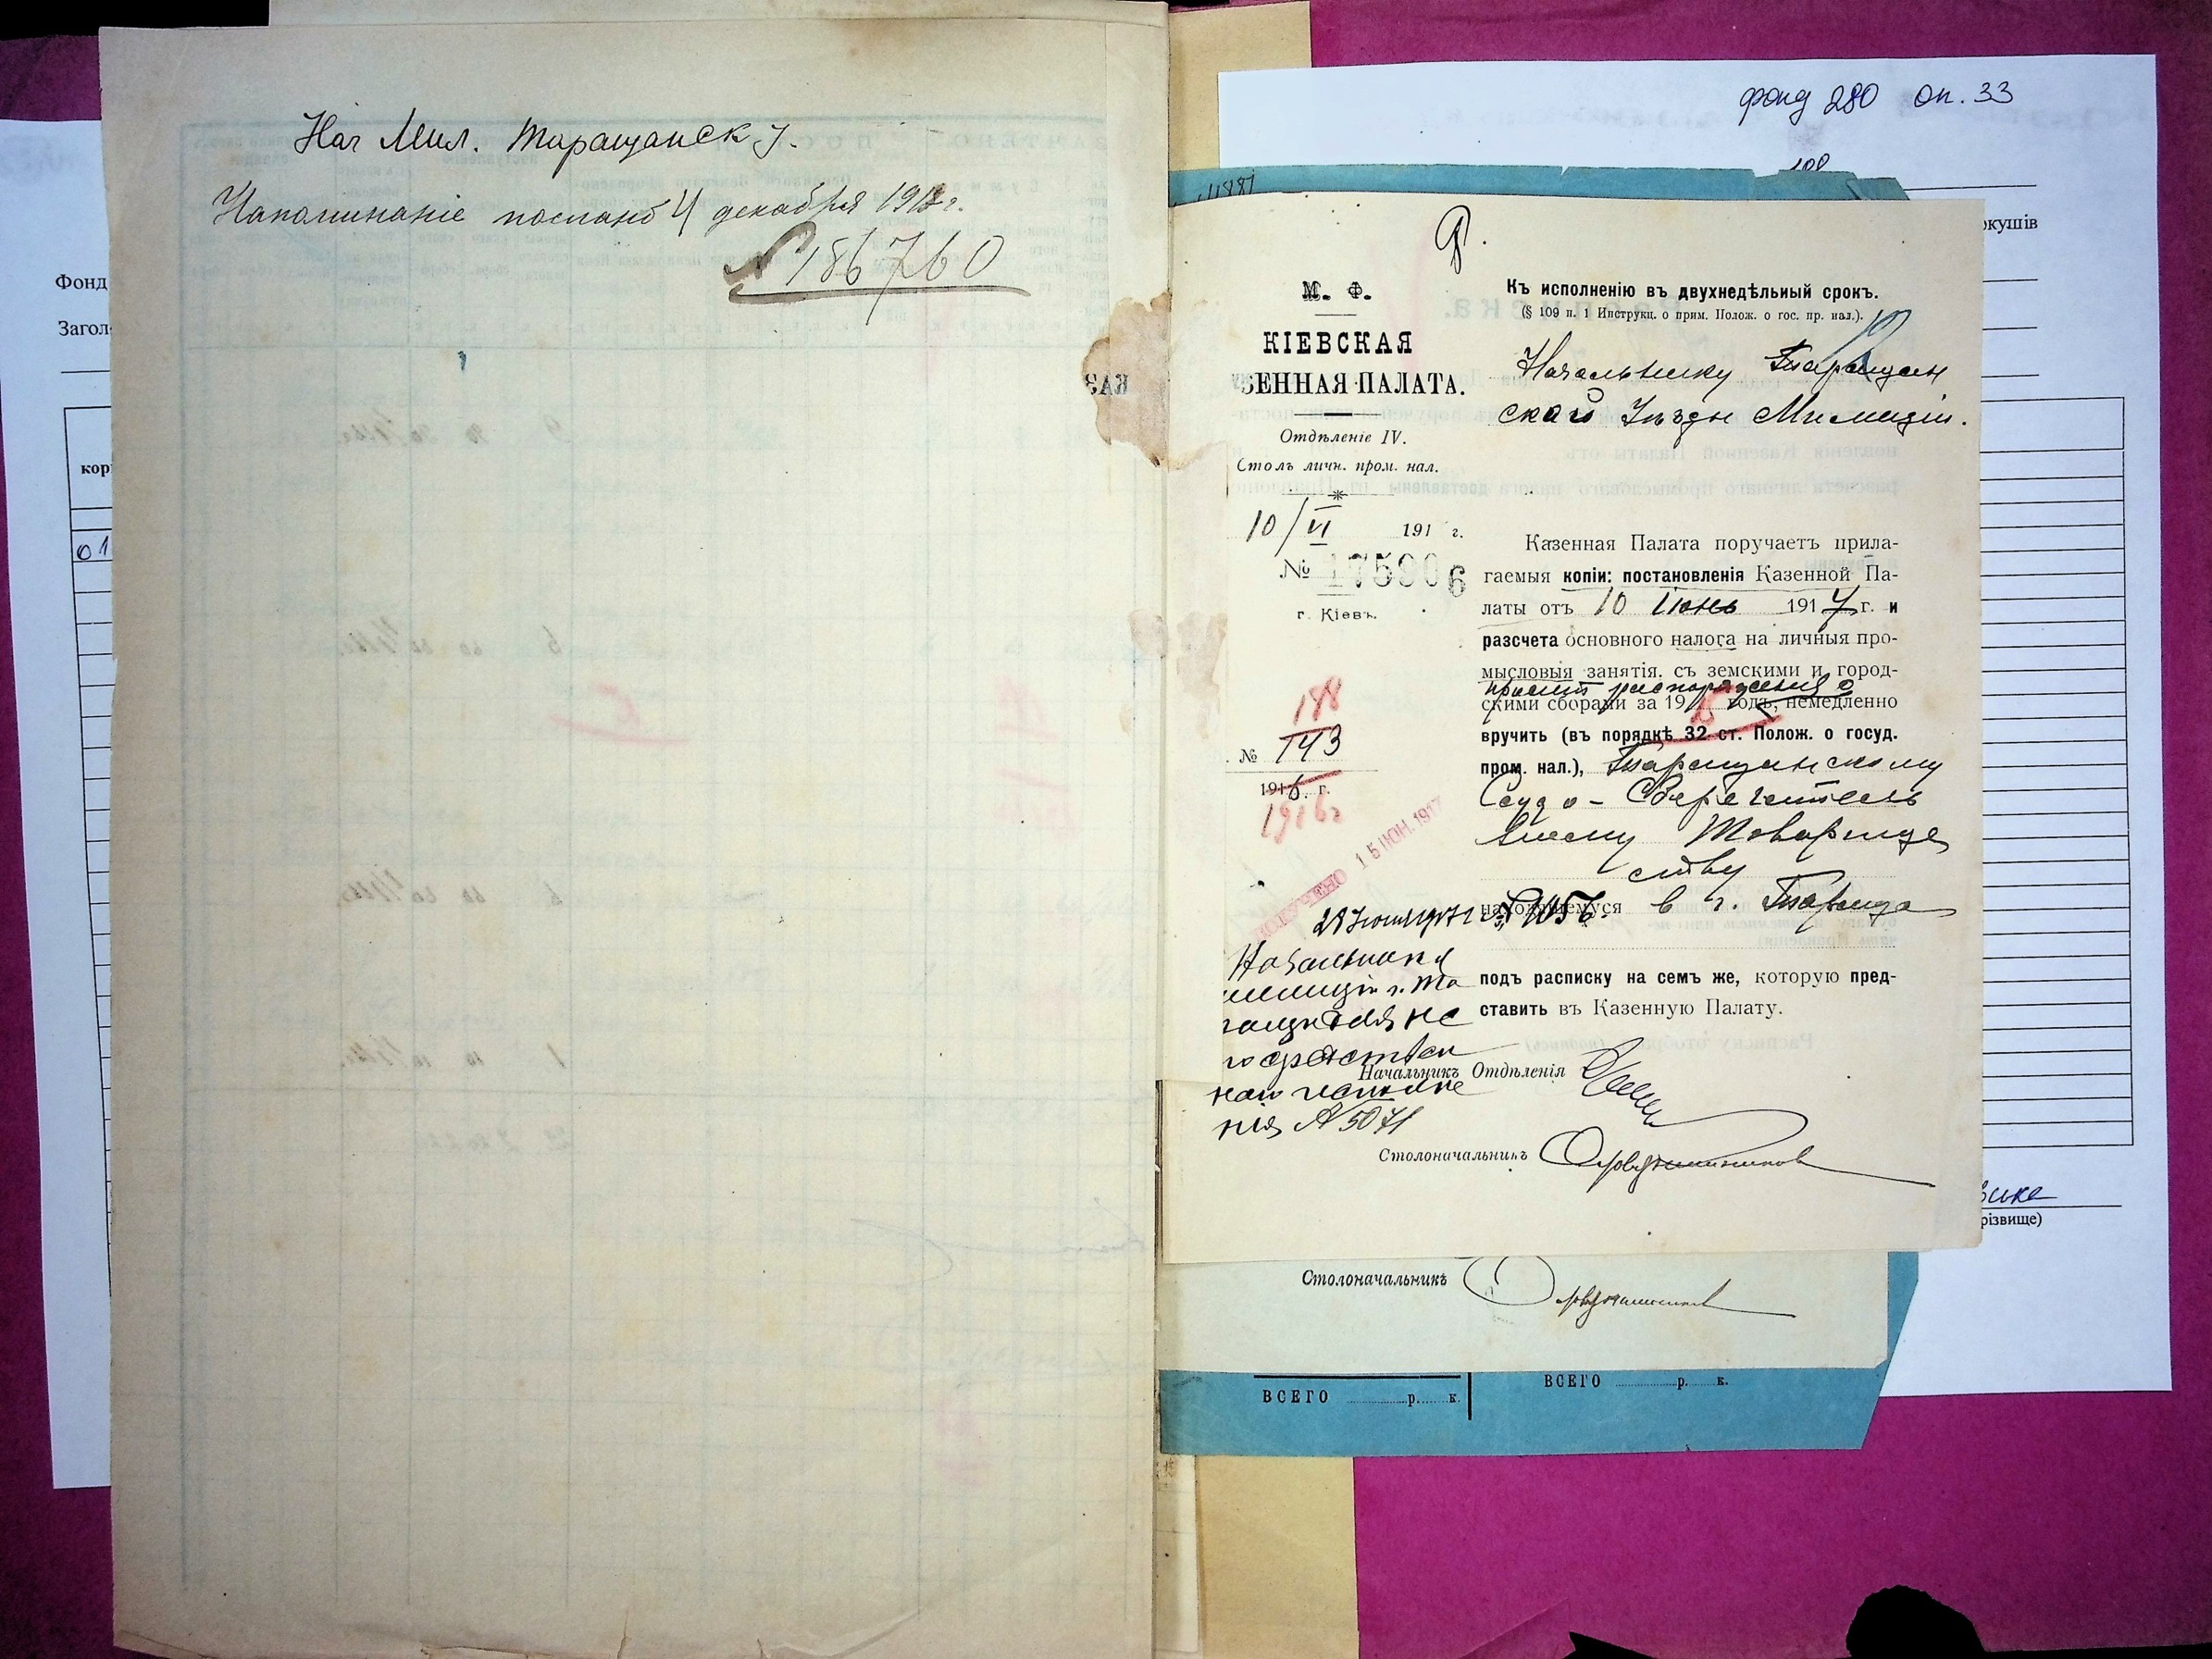 Нач Мил. Таращанск у.
Напоминаніе послано 4 декабря 191 г.
№ 186760
фонд 280 оп. 33
Фонд
Загол
кор
01
КАЗ
М. Ф.
КІЕВСКАЯ
ЗЕННАЯ ПАЛАТА.
Отдѣленіе IV.
Столъ личн. пром. нал.
10/VI 191 г.
№ 175906
г. Кіевъ.
188
№ 143
1915. г.
1916 г
ПОЛУЧЕНО 15 ІЮН. 1917
Къ исполненію въ двухнедѣльный срокъ.
(§ 109 п. 1 Инструкц. о прим. Полож. о гос. пр. нал.).
Начальнику Таращан
ской Уѣздн Милиціи.
Казенная Палата поручаетъ прила-
гаемыя копіи: постановленія Казенной Па-
латы отъ 10 Іюнь 1917 г. и
разсчета основного налога на личныя про-
мысловыя занятія. съ земскими и город-
скими сборами за 19 годъ, немедленно
вручить (въ порядкѣ 32 ст. Полож. о госуд.
пром. нал.), Таращанскому
Ссудо-Сберегатель
ному Товарище
ству
находящемуся в г. Тараща
подъ расписку на семъ же, которую пред-
ставить въ Казенную Палату.
28 Іюня 1917 г
Начальнику
милиціи г. Та
ращи для не
посредствен
наго исполне
нія № 5071
Начальникъ Отдѣленія
Столоначальникъ
Столоначальникъ
ВСЕГО р. к.
ВСЕГО р. к.
кушів
різвище)